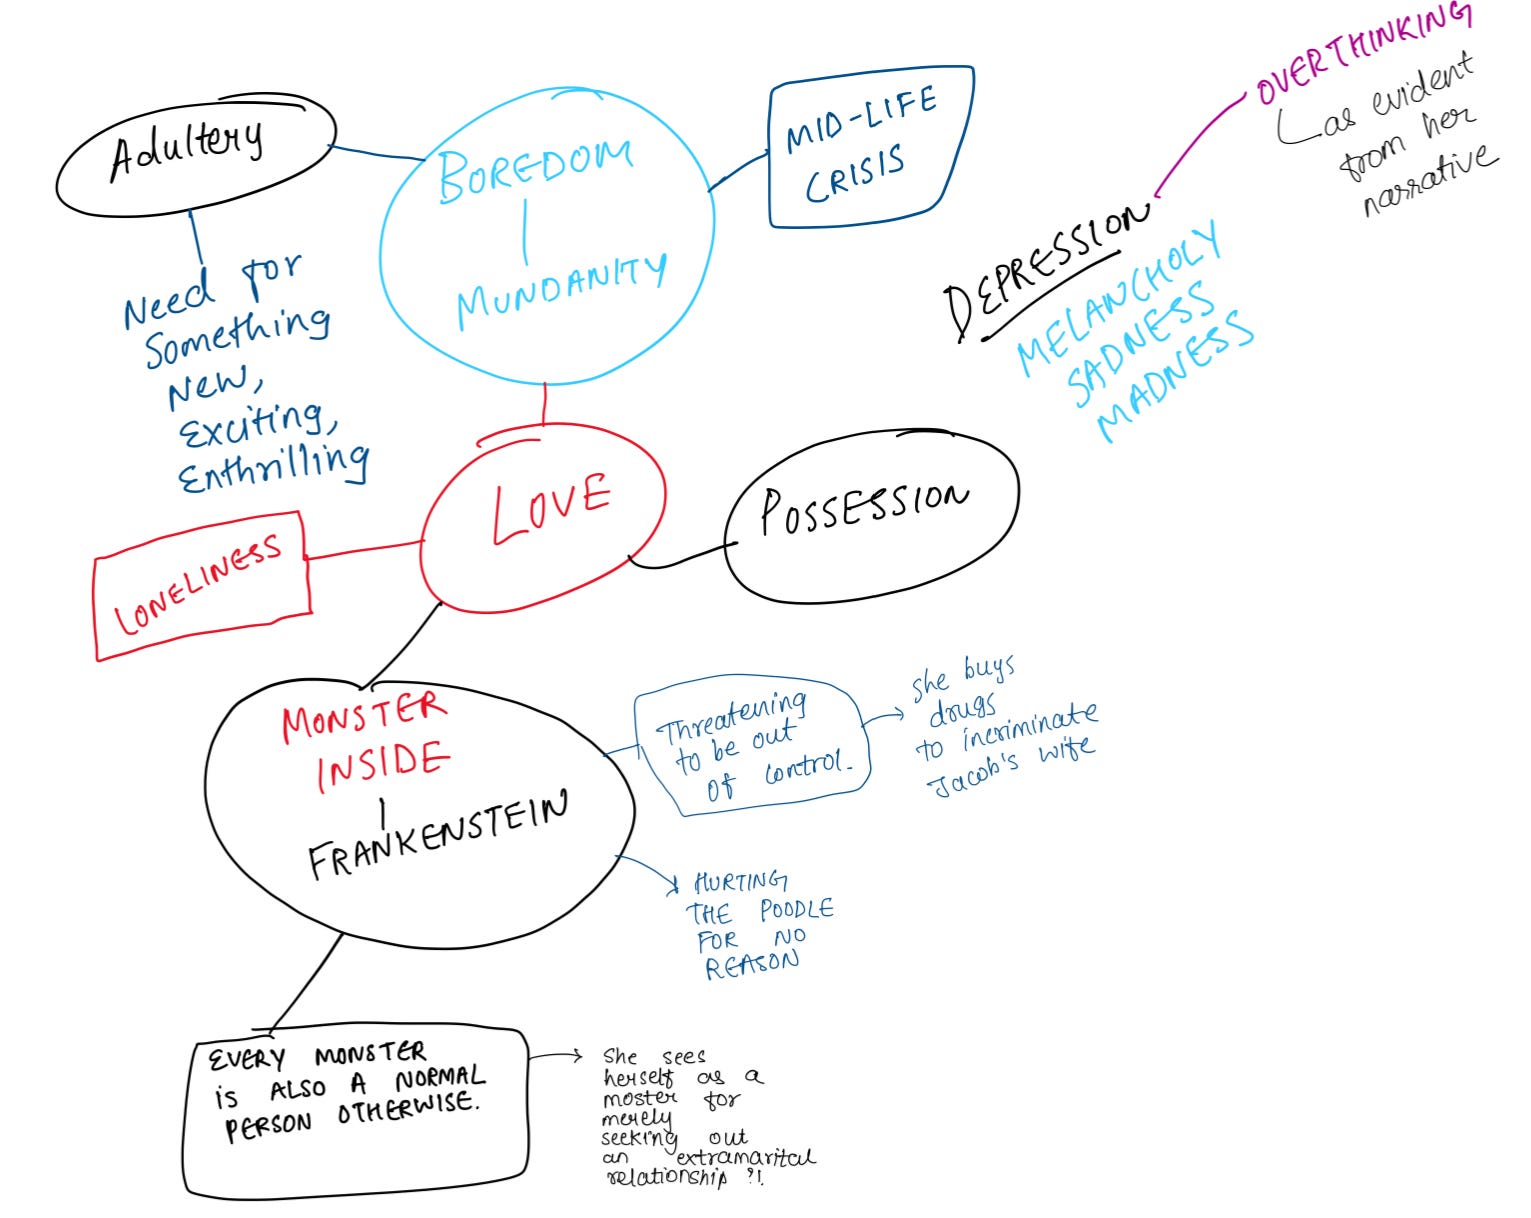 Adultery
Need for
Something
New,
Exciting,
Enthrilling
BOREDOM
MUNDANITY
MID-LIFE
CRISIS
OVERTHINKING
as evident
from her
narrative
DEPRESSION
MELANCHOLY
SADNESS
MADNESS
LOVE
LONELINESS
POSSESSION
MONSTER
INSIDE
FRANKENSTEIN
Threatening
to be out
of control.
she buys
drugs
to incriminate
Jacob's wife
HURTING
THE POODLE
FOR NO
REASON
EVERY MONSTER
is ALSO A NORMAL
PERSON OTHERWISE.
She sees
herself as a
moster for
merely
seeking out
an extramarital
relationship ?!